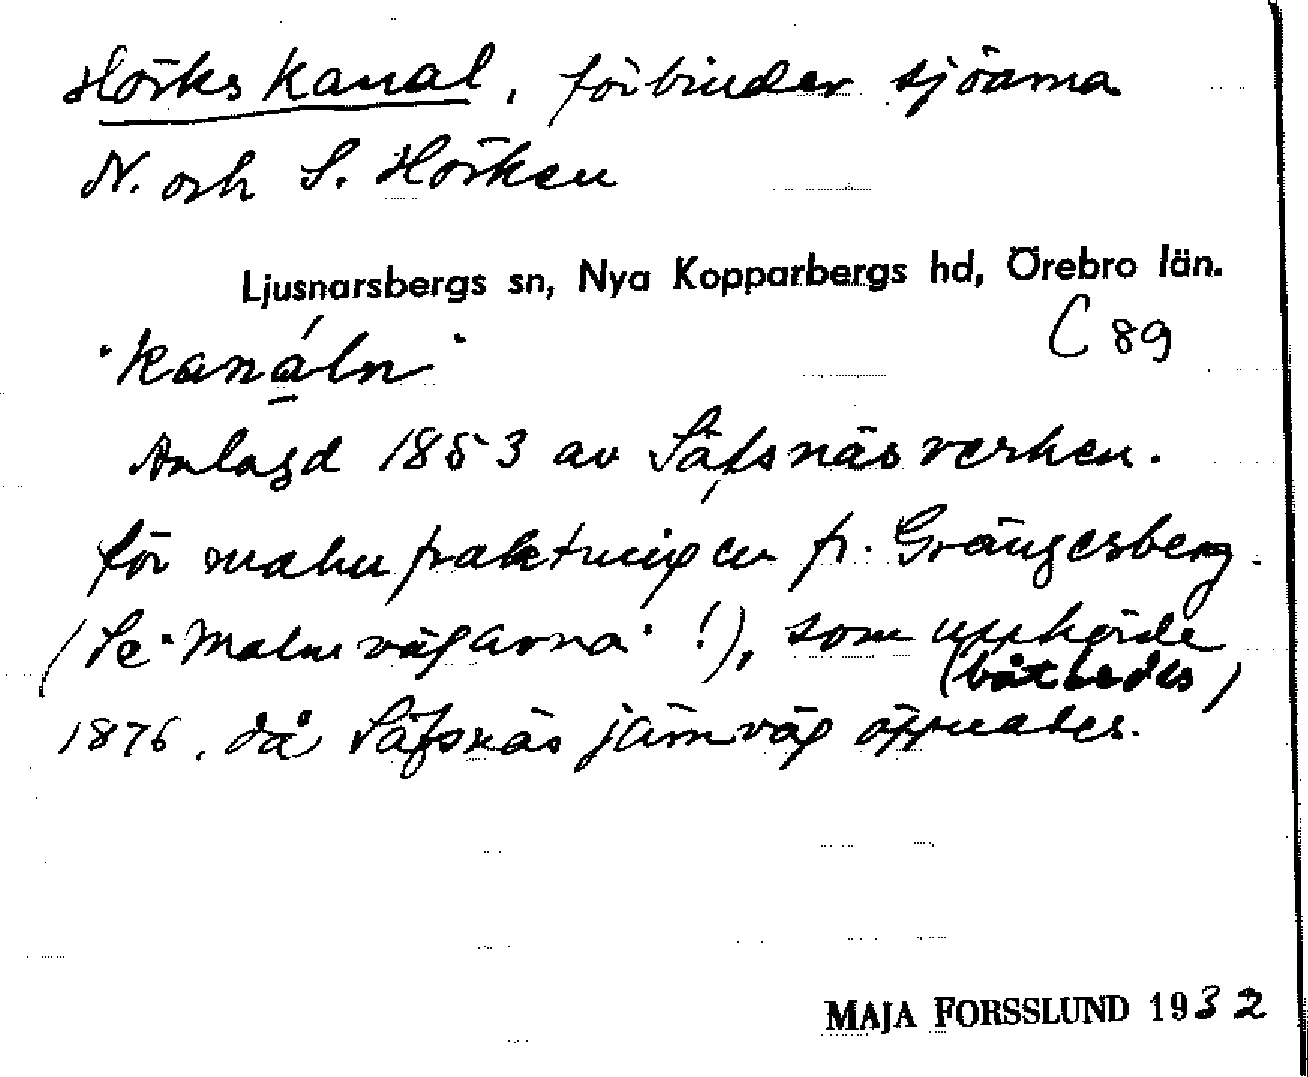 Hörks kanal, förbinder sjöarna
N. och S. Hörken
Ljusnarsbergs sn, Nya Kopparbergs hd, Örebro län.
"kanáln"
C 89
Anlagd 1853 av Säfsnäsverken.
för malmfraktningen fr. Grängesberg
(Se "Malmvägarna" !), som upphörde
(båtledes)
1876, då Säfsnäs järnväg öppnades.
MAJA FORSSLUND 1932